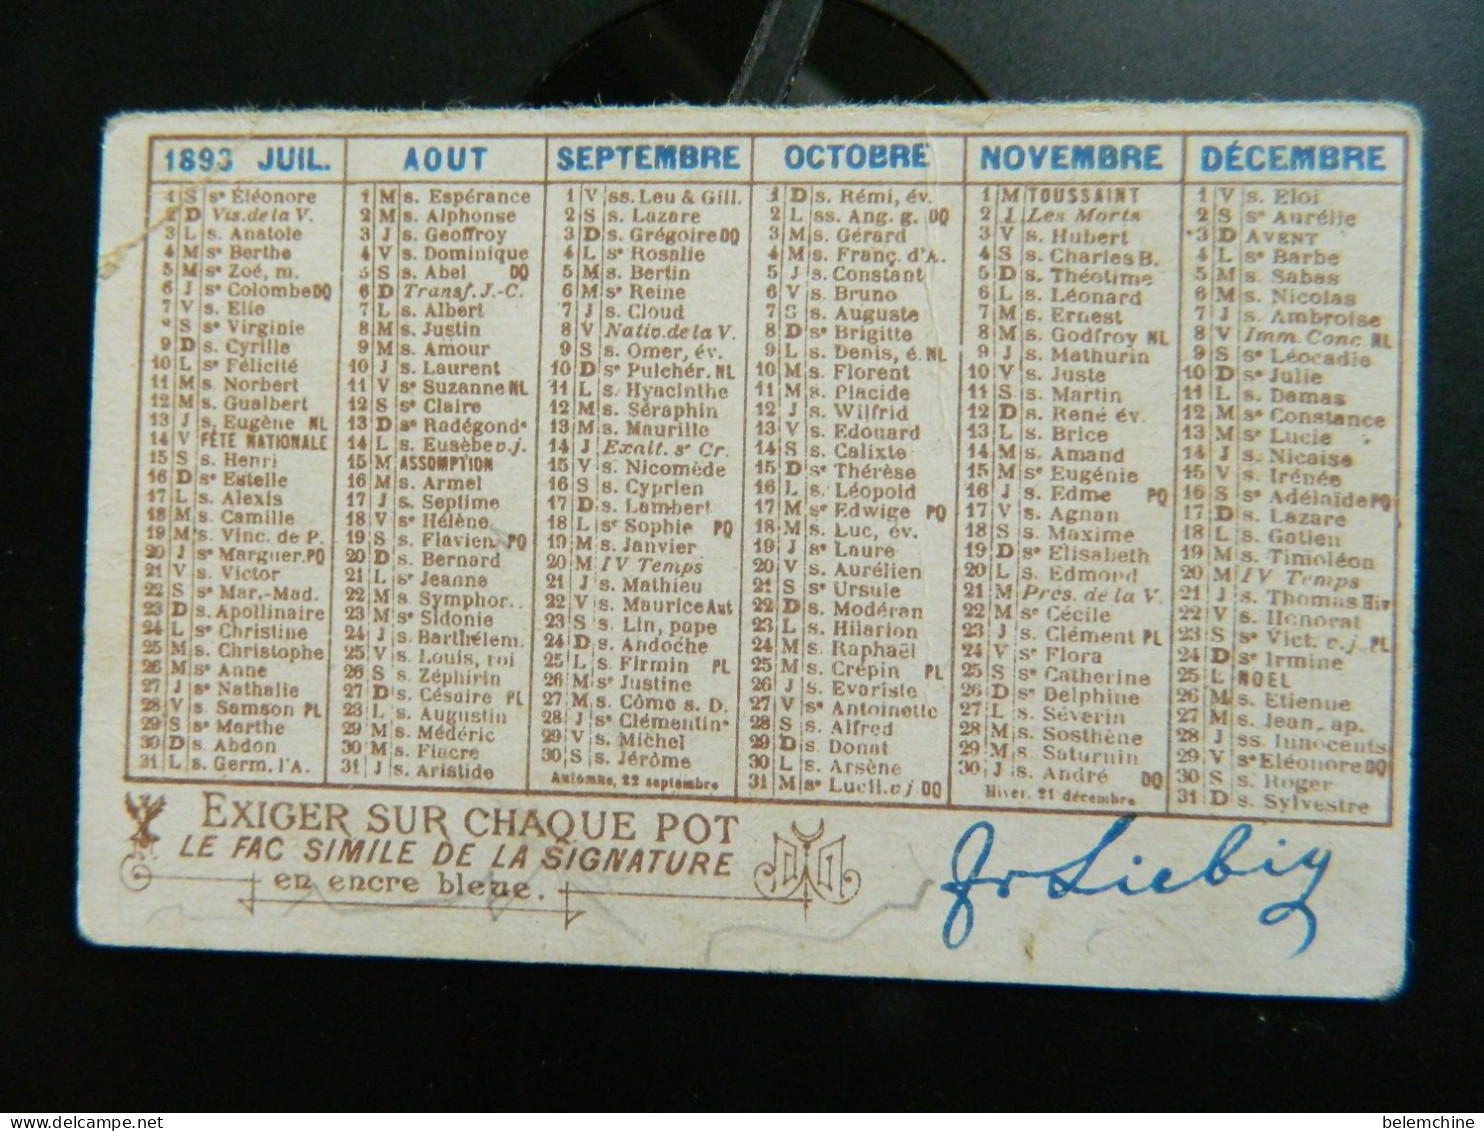 1893 JUIL.
1 S sᵉ Éléonore
2 D Vis. de la V.
3 L s. Anatole
4 M sᵉ Berthe
5 M s. Zoé, m.
6 J sᵉ Colombe DQ
7 V s. Elie
8 S sᵉ Virginie
9 D s. Cyrille
10 L sᵉ Félicité
11 M s. Norbert
12 M s. Gualbert
13 J s. Eugène NL
14 V FÊTE NATIONALE
15 S s. Henri
16 D sᵉ Estelle
17 L s. Alexis
18 M s. Camille
19 M s. Vinc. de P.
20 J sᵉ Marguer. PQ
21 V s. Victor
22 S sᵉ Mar.-Mad.
23 D s. Apollinaire
24 L sᵉ Christine
25 M s. Christophe
26 M sᵉ Anne
27 J sᵉ Nathalie
28 V s. Samson PL
29 S sᵉ Marthe
30 D s. Abdon
31 L s. Germ. l'A.
AOUT
1 M s. Espérance
2 M s. Alphonse
3 J s. Geoffroy
4 V s. Dominique
5 S s. Abel DQ
6 D Transf. J.-C.
7 L s. Albert
8 M s. Justin
9 M s. Amour
10 J s. Laurent
11 V sᵉ Suzanne NL
12 S sᵉ Claire
13 D sᵉ Radégondᵉ
14 L s. Eusèbe v.j.
15 M ASSOMPTION
16 M s. Armel
17 J s. Septime
18 V sᵉ Hélène
19 S s. Flavien PQ
20 D s. Bernard
21 L sᵉ Jeanne
22 M s. Symphor..
23 M sᵉ Sidonie
24 J s. Barthélem.
25 V s. Louis, roi
26 S s. Zéphirin
27 D s. Césaire PL
28 L s. Augustin
29 M s. Médéric
30 M s. Fiacre
31 J s. Aristide
SEPTEMBRE
1 V ss. Leu & Gill.
2 S s. Lazare
3 D s. Grégoire DQ
4 L sᵉ Rosalie
5 M s. Bertin
6 M sᵉ Reine
7 J s. Cloud
8 V Nativ. de la V.
9 S s. Omer, év.
10 D sᵉ Pulchér. NL
11 L s. Hyacinthe
12 M s. Séraphin
13 M s. Maurille
14 J Exalt. sᵉ Cr.
15 V s. Nicomède
16 S s. Cyprien
17 D s. Lambert
18 L sᵉ Sophie PQ
19 M s. Janvier
20 M IV Temps
21 J s. Mathieu
22 V s. Maurice Aut
23 S s. Lin, pape
24 D s. Andoche
25 L s. Firmin PL
26 M sᵉ Justine
27 M s. Côme s. D.
28 J sᵉ Clémentinᵉ
29 V s. Michel
30 S s. Jérôme
Automne, 22 septembre
OCTOBRE
1 D s. Rémi, év.
2 L ss. Ang. g. DQ
3 M s. Gérard
4 M s. Franç. d'A.
5 J s. Constant
6 V s. Bruno
7 S s. Auguste
8 D sᵉ Brigitte
9 L s. Denis, é. NL
10 M s. Florent
11 M s. Placide
12 J s. Wilfrid
13 V s. Edouard
14 S s. Calixte
15 D sᵉ Thérèse
16 L s. Léopold
17 M sᵉ Edwige PQ
18 M s. Luc, év.
19 J sᵉ Laure
20 V s. Aurélien
21 S sᵉ Ursule
22 D s. Modéran
23 L s. Hilarion
24 M s. Raphaël
25 M s. Crépin PL
26 J s. Evariste
27 V sᵉ Antoinette
28 S s. Alfred
29 D s. Donat
30 L s. Arsène
31 M sᵉ Lucil. v.j DQ
NOVEMBRE
1 M TOUSSAINT
2 J Les Morts
3 V s. Hubert
4 S s. Charles B.
5 D s. Théotime
6 L s. Léonard
7 M s. Ernest
8 M s. Godfroy NL
9 J s. Mathurin
10 V s. Juste
11 S s. Martin
12 D s. René év.
13 L s. Brice
14 M s. Amand
15 M sᵉ Eugénie
16 J s. Edme PQ
17 V s. Agnan
18 S s. Maxime
19 D sᵉ Elisabeth
20 L s. Edmond
21 M Prés. de la V.
22 M sᵉ Cécile
23 J s. Clément PL
24 V sᵉ Flora
25 S sᵉ Catherine
26 D sᵉ Delphine
27 L s. Séverin
28 M s. Sosthène
29 M s. Saturnin
30 J s. André DQ
Hiver, 21 décembre
DÉCEMBRE
1 V s. Eloi
2 S sᵉ Aurélie
3 D AVENT
4 L sᵉ Barbe
5 M s. Sabas
6 M s. Nicolas
7 J s. Ambroise
8 V Imm. Conc NL
9 S sᵉ Léocadie
10 D sᵉ Julie
11 L s. Damas
12 M sᵉ Constance
13 M sᵉ Lucie
14 J s. Nicaise
15 V s. Irénée
16 S sᵉ Adélaïde PQ
17 D s. Lazare
18 L s. Gatien
19 M s. Timoléon
20 M IV Temps
21 J s. Thomas Hiv
22 V s. Honorat
23 S sᵉ Vict. v.j. PL
24 D sᵉ Irmine
25 L NOEL
26 M s. Etienne
27 M s. Jean, ap.
28 J ss. Innocents
29 V sᵉ Eléonore DQ
30 S s. Roger
31 D s. Sylvestre
EXIGER SUR CHAQUE POT
LE FAC SIMILE DE LA SIGNATURE
en encre bleue.
Jr Liebig
belemchine